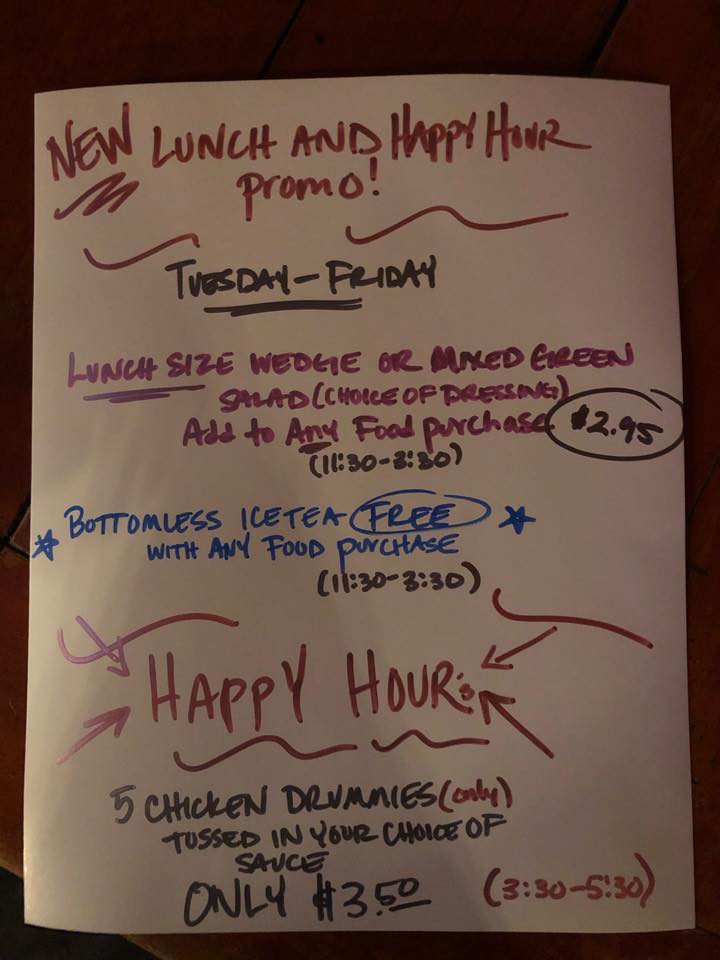 NEW LUNCH AND HAPPY HOUR
promo!
TUESDAY - FRIDAY
LUNCH SIZE WEDGIE OR MIXED GREEN
SALAD (CHOICE OF DRESSING)
Add to Any Food purchase $2.95
(11:30-3:30)
BOTTOMLESS ICETEA FREE
WITH ANY FOOD PURCHASE
(11:30-3:30)
HAPPY HOUR:
5 CHICKEN DRUMMIES (only)
TOSSED IN YOUR CHOICE OF
SAUCE
ONLY $3.50 (3:30-5:30)